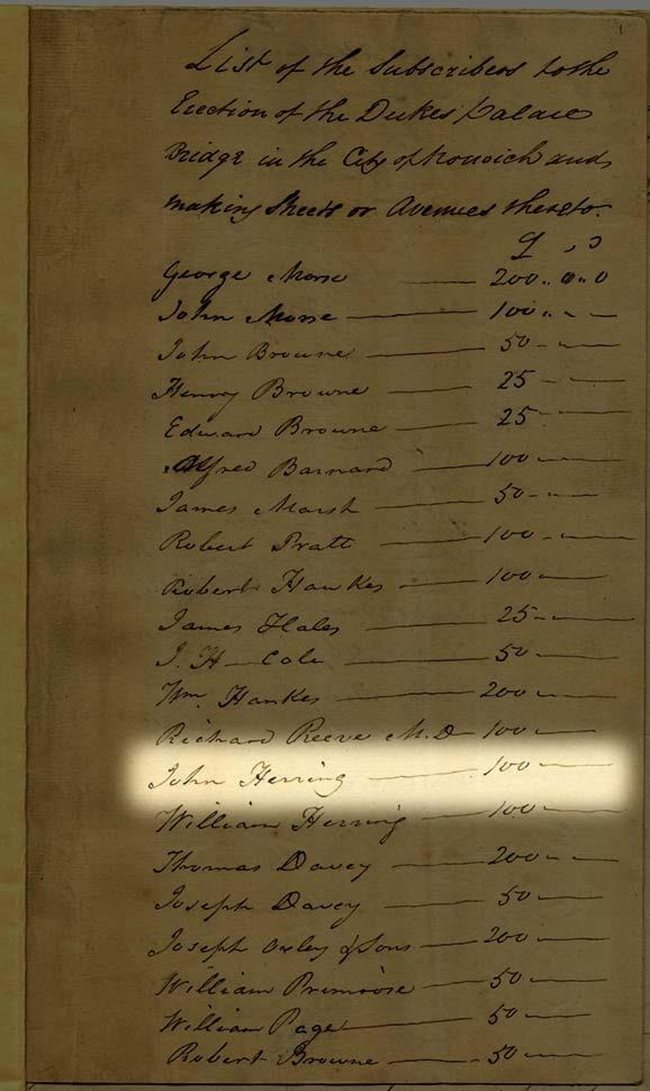 1
List of the Subscribers to the
Erection of the Dukes Palace
Bridge in the City of Norwich and
making Streets or Avenues thereto.
£ „ „
George Morse — 200„0„0
John Morse — 100„ - —
John Browne — 50 - —
Henry Browne — 25 - —
Edward Browne — 25 - —
Alfred Barnard — 100 —
James Marsh — 50 - —
Robert Pratt — 100 - —
Robert Hawkes — 100 —
James Hales — 25 - —
J. H Cole — 50 —
Wm. Hankes — 200 —
Richard Reeve M.D — 100 —
John Herring — 100 —
William Herring — 100 —
Thomas Davey — 200 - —
Joseph Davey — 50 —
Joseph Oxley & Sons — 200 —
William Primrose — 50 —
William Page — 50 —
Robert Browne — 50 —